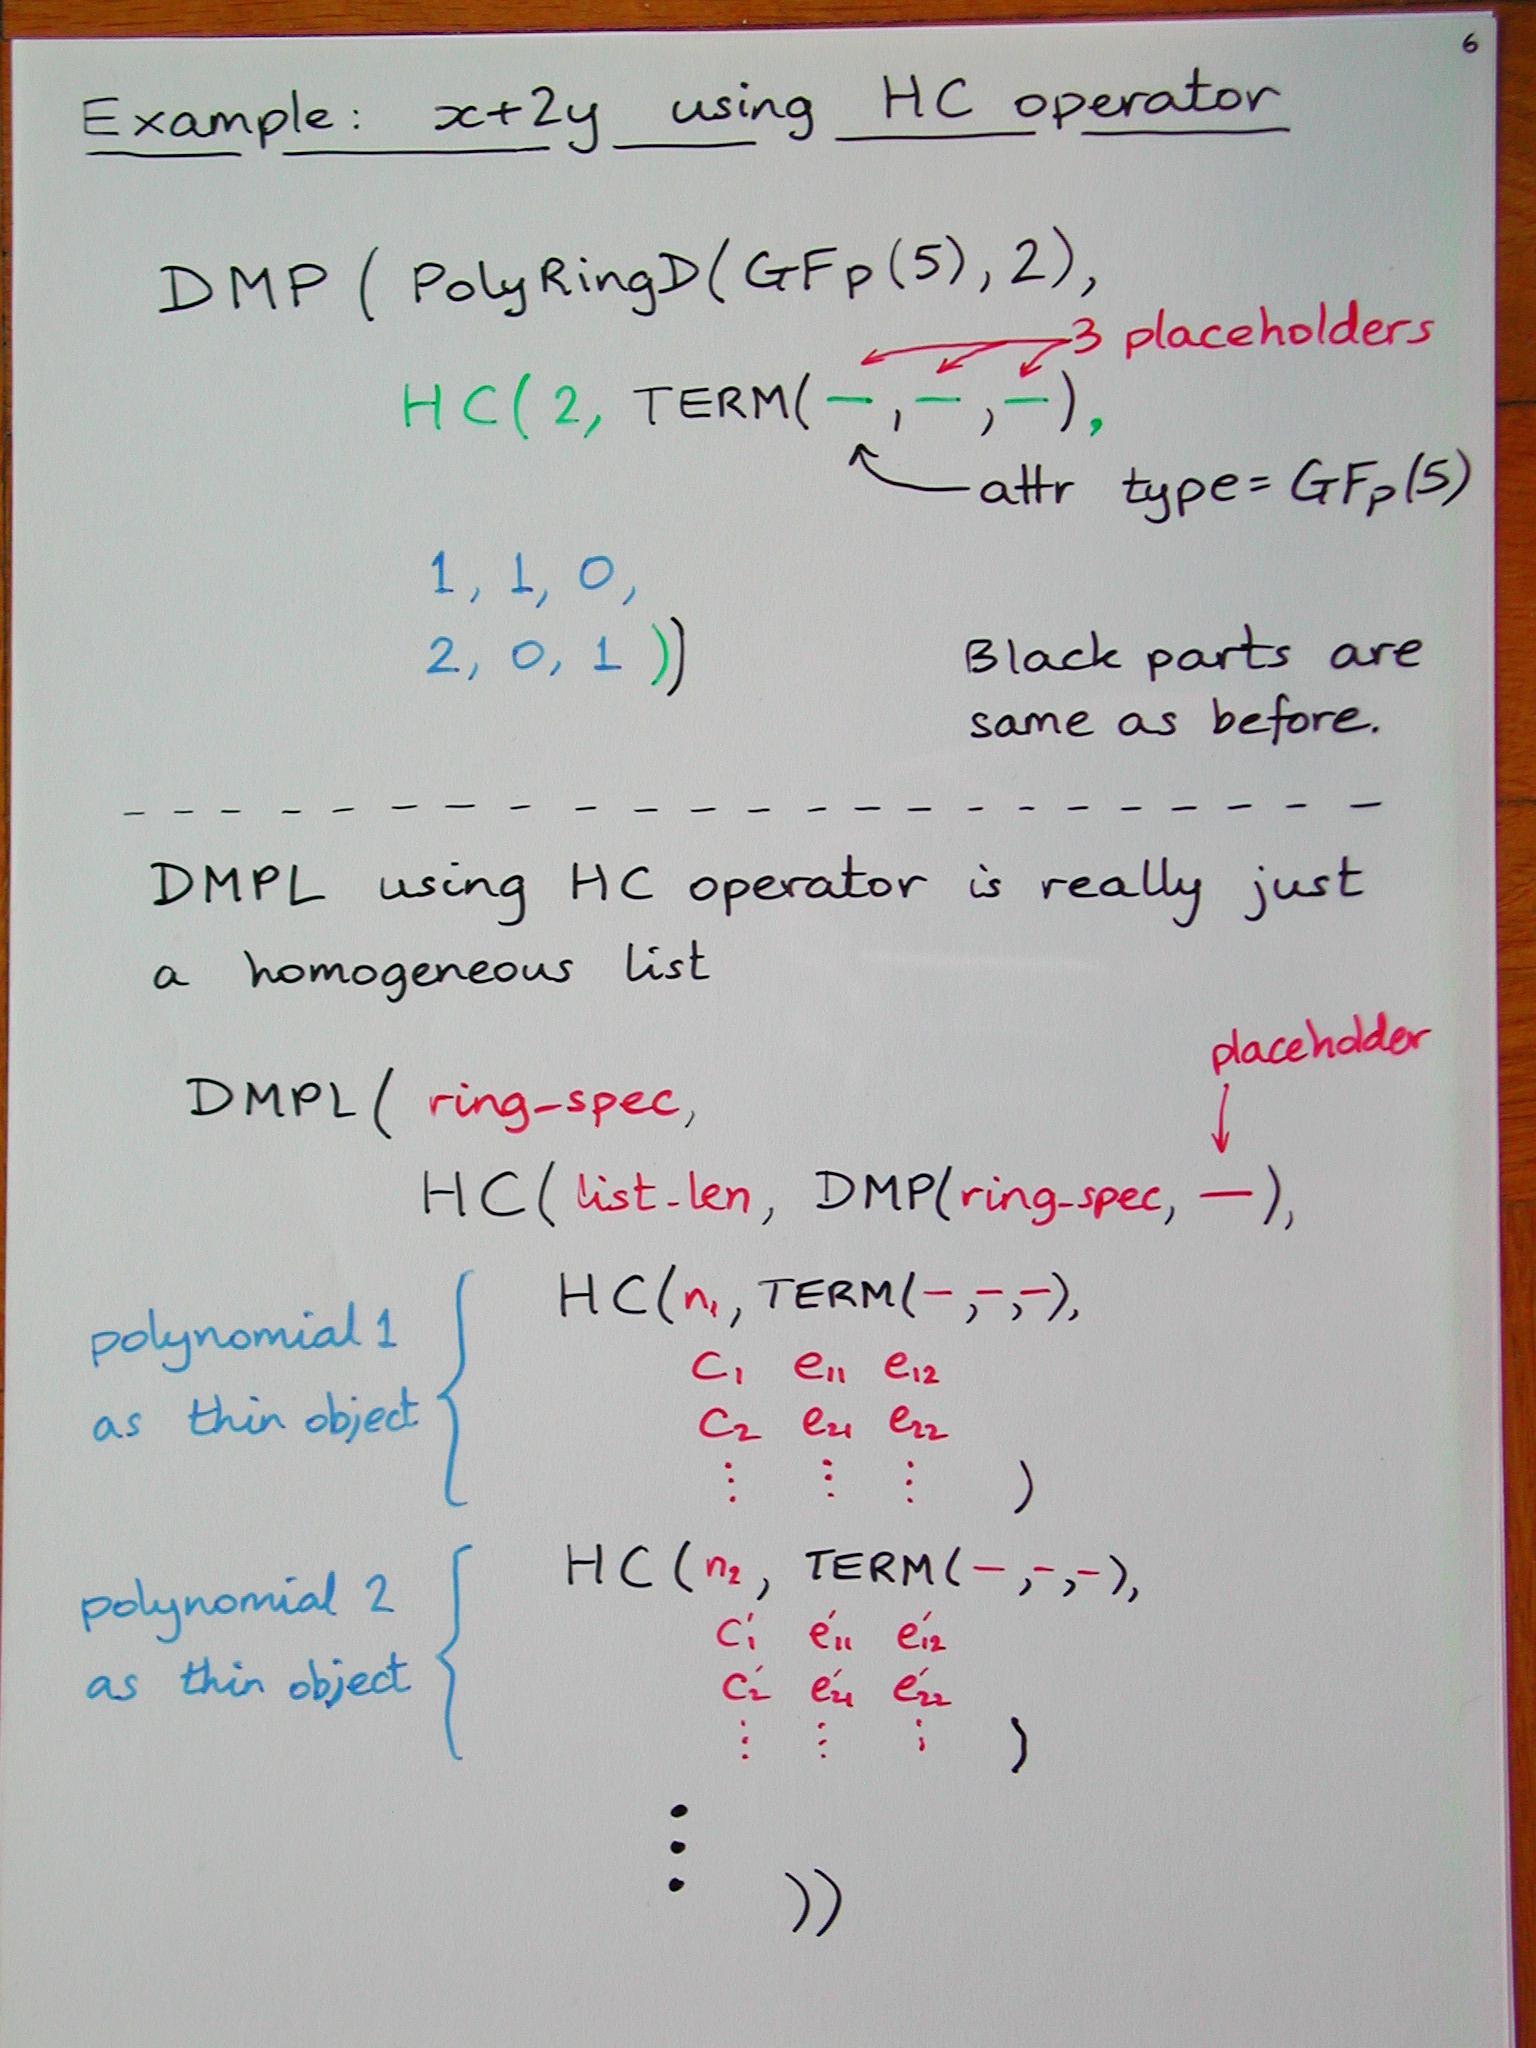 6
Example: x+2y using HC operator
DMP ( PolyRingD(GFp(5), 2),
3 placeholders
HC(2, TERM(—, —, —),
attr type = GFp(5)
1, 1, 0,
2, 0, 1 ))
Black parts are
same as before.
DMPL using HC operator is really just
a homogeneous list
placeholder
DMPL( ring-spec,
HC(list-len, DMP(ring-spec, —),
HC(n₁, TERM(-,-,-),
polynomial 1
c₁ e₁₁ e₁₂
as thin object
c₂ e₂₁ e₂₂
⋮ ⋮ ⋮ )
HC(n₂, TERM(-,-,-),
polynomial 2
c'₁ e'₁₁ e'₁₂
as thin object
c'₂ e'₂₁ e'₂₂
⋮ ⋮ ⋮ )
⋮
))